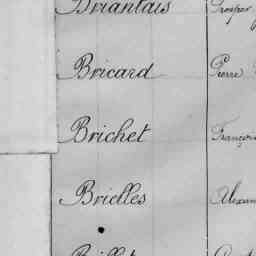 Briantais Prosper
Bricard Pierre
Brichet François
Brielles